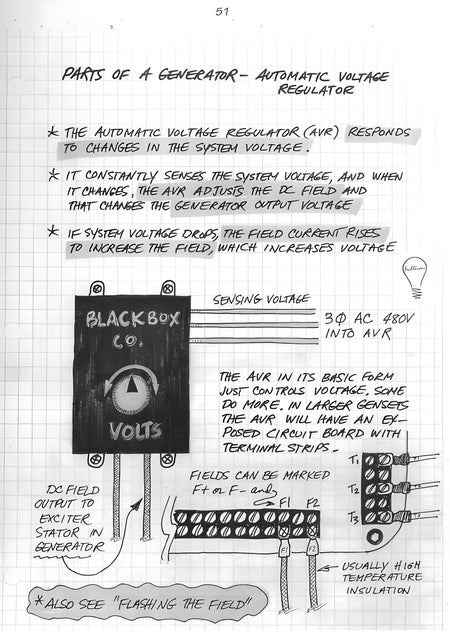 51
PARTS OF A GENERATOR – AUTOMATIC VOLTAGE
REGULATOR
* THE AUTOMATIC VOLTAGE REGULATOR (AVR) RESPONDS
TO CHANGES IN THE SYSTEM VOLTAGE.
* IT CONSTANTLY SENSES THE SYSTEM VOLTAGE, AND WHEN
IT CHANGES, THE AVR ADJUSTS THE DC FIELD AND
THAT CHANGES THE GENERATOR OUTPUT VOLTAGE
* IF SYSTEM VOLTAGE DROPS, THE FIELD CURRENT RISES
TO INCREASE THE FIELD, WHICH INCREASES VOLTAGE
SENSING VOLTAGE
3Ø AC 480V
INTO AVR
BLACKBOX
CO.
VOLTS
THE AVR IN ITS BASIC FORM
JUST CONTROLS VOLTAGE. SOME
DO MORE. IN LARGER GENSETS
THE AVR WILL HAVE AN EX-
POSED CIRCUIT BOARD WITH
TERMINAL STRIPS.
T1
T2
T3
FIELDS CAN BE MARKED
F+ or F- and
F1 F2
DC FIELD
OUTPUT TO
EXCITER
STATOR IN
GENERATOR
F1 F2
USUALLY HIGH
TEMPERATURE
INSULATION
*ALSO SEE "FLASHING THE FIELD"